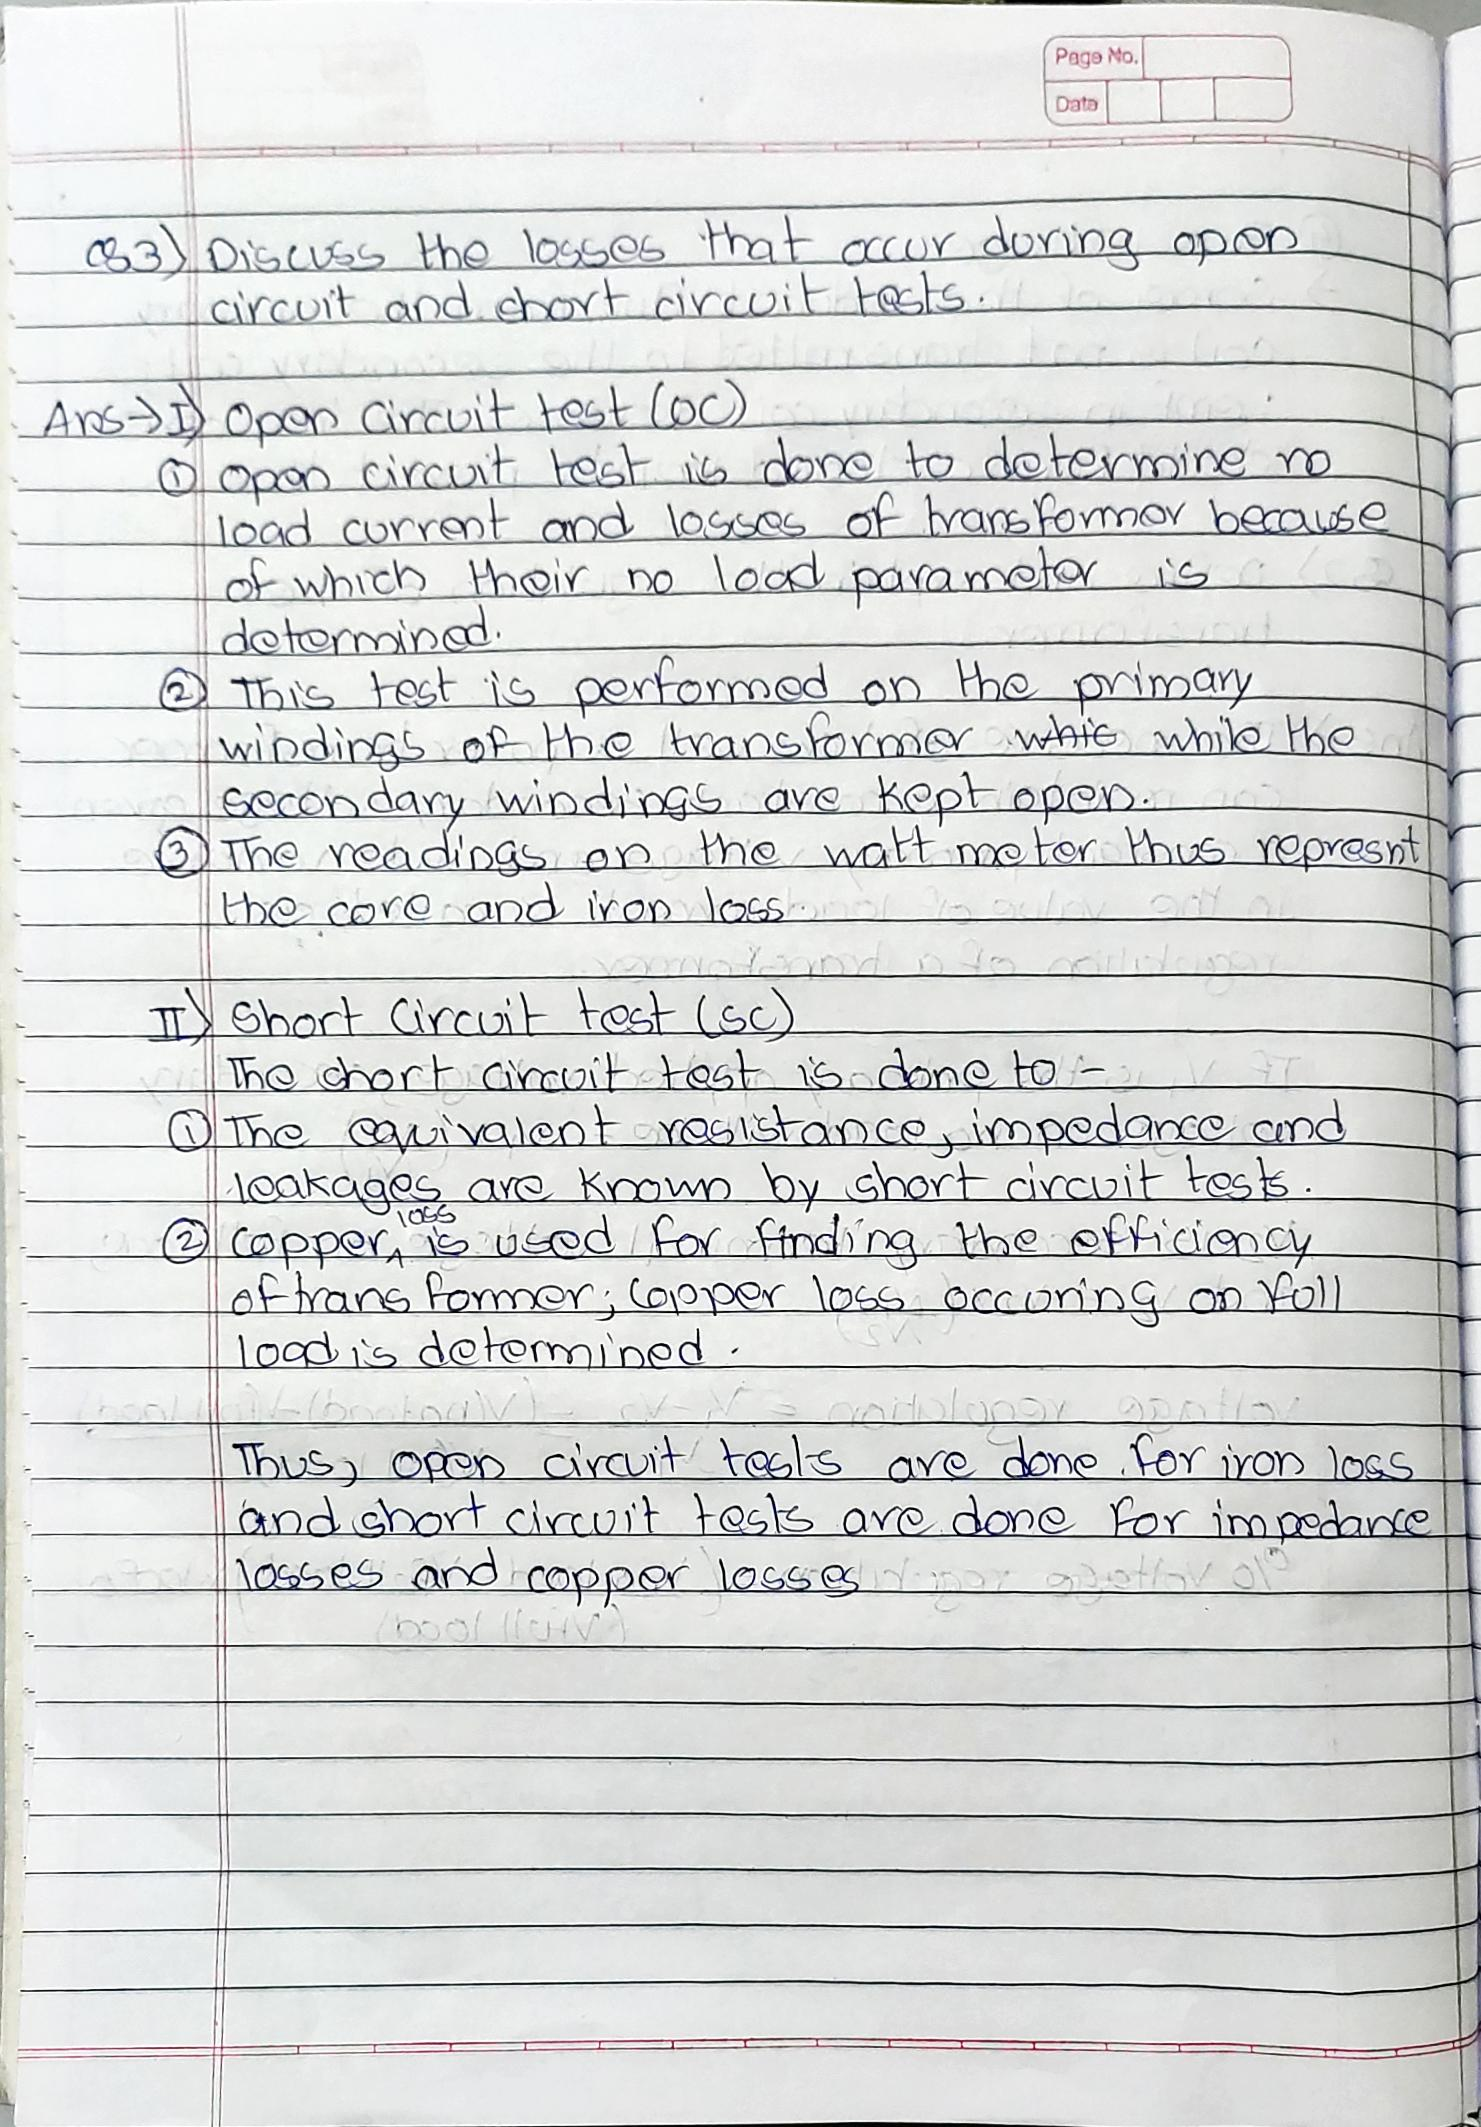 Page No.
Date
Q3) Discuss the losses that occur during open
circuit and short circuit tests.
Ans→ I) Open Circuit test (OC)
① Open circuit test is done to determine no
load current and losses of transformer because
of which their no load parameter is
determined.
② This test is performed on the primary
windings of the transformer whie while the
secondary windings are kept open.
③ The readings on the watt meter thus represnt
the core and iron loss.
II) Short Circuit test (SC)
The short circuit test is done to -
① The equivalent resistance, impedance and
leakages are known by short circuit tests.
② Copper loss is used for finding the efficiency
of transformer; Copper loss occuring on full
load is determined.
Thus, open circuit tests are done for iron loss
and short circuit tests are done for impedance
losses and copper losses